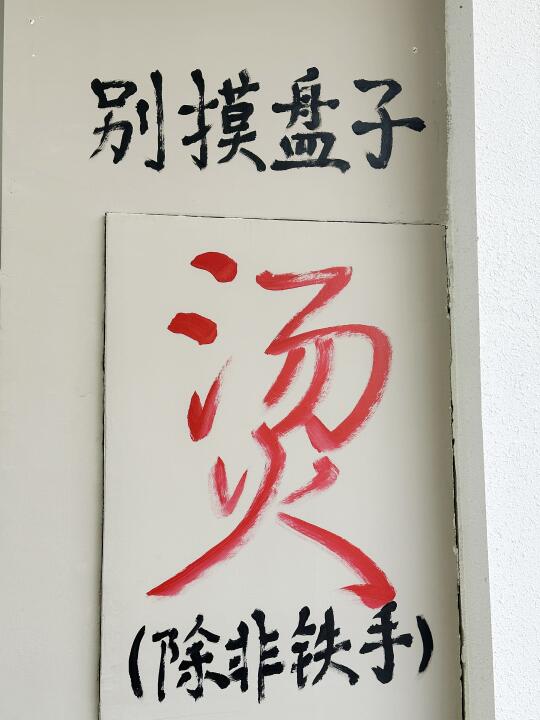 别摸盘子
烫
(除非铁手)